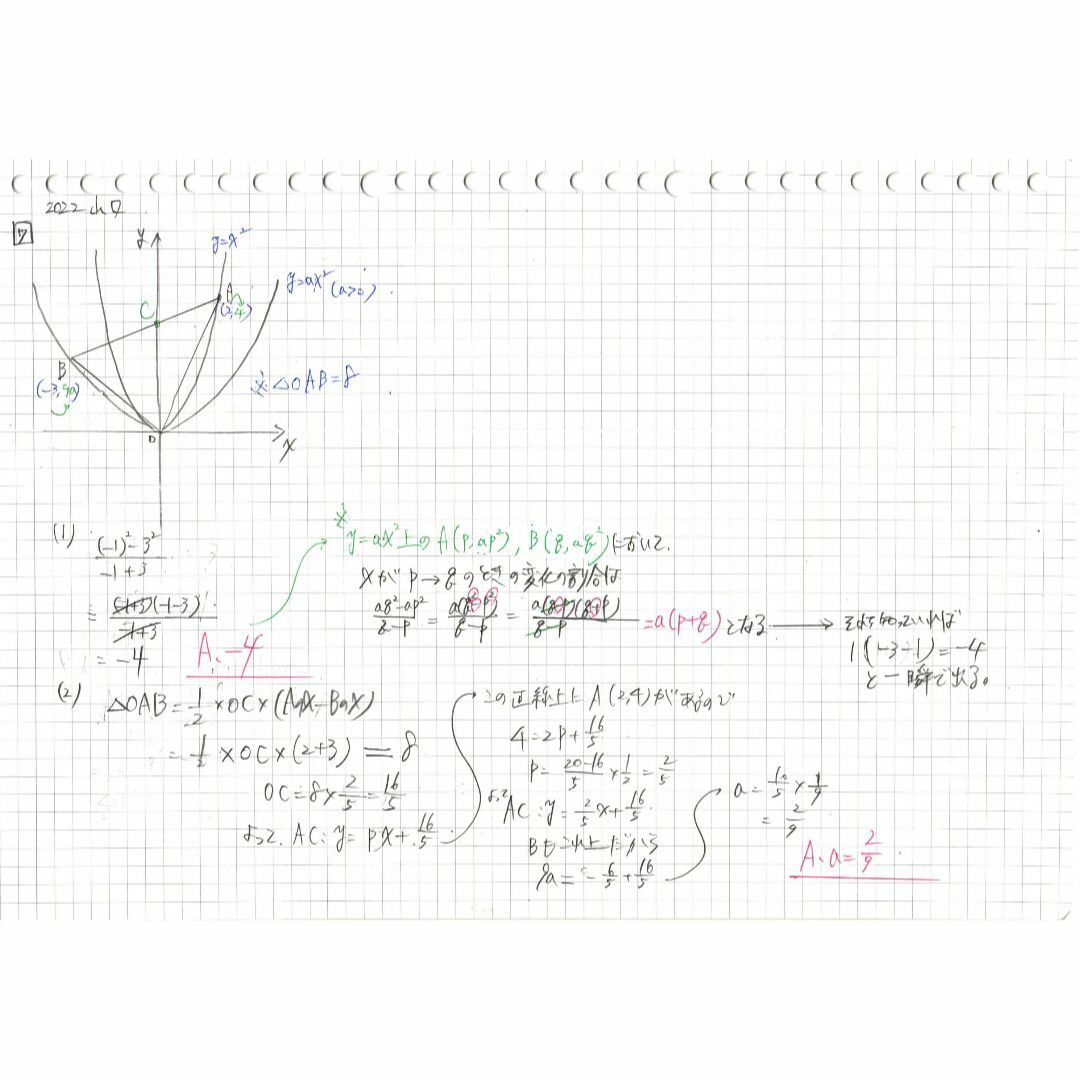 2022
7
y
y=x²
y=ax² (a>0)
C
A
(2,4)
B
(-3,9a)
※ △OAB=8
O
x
(1) (-1)²-3² / -1+3
= (-1+3)(-1-3) / -1+3
= -4
A. -4
※ y=ax²上の A(p,ap²), B(q,aq²)において、
xが p→q のときの変化の割合は
aq²-ap² / q-p = a(q²-p²) / q-p = a(q-p)(q+p) / q-p = a(p+q) となる → それを知っていれば
1(-3-1)=-4
と一瞬で出る。
(2) △OAB=1/2×OC×(Aのx-Bのx)
= 1/2×OC×(2+3) = 8
OC=8×2/5=16/5
よって、AC: y=px+16/5
この直線上に A(2,4)があるので
4=2p+16/5
p= 20-16/5 ×1/2 = 2/5
よって AC: y=2/5x+16/5
Bもこれ上だから
9a=-6/5+16/5
a=10/5×1/9
= 2/9
A. a=2/9